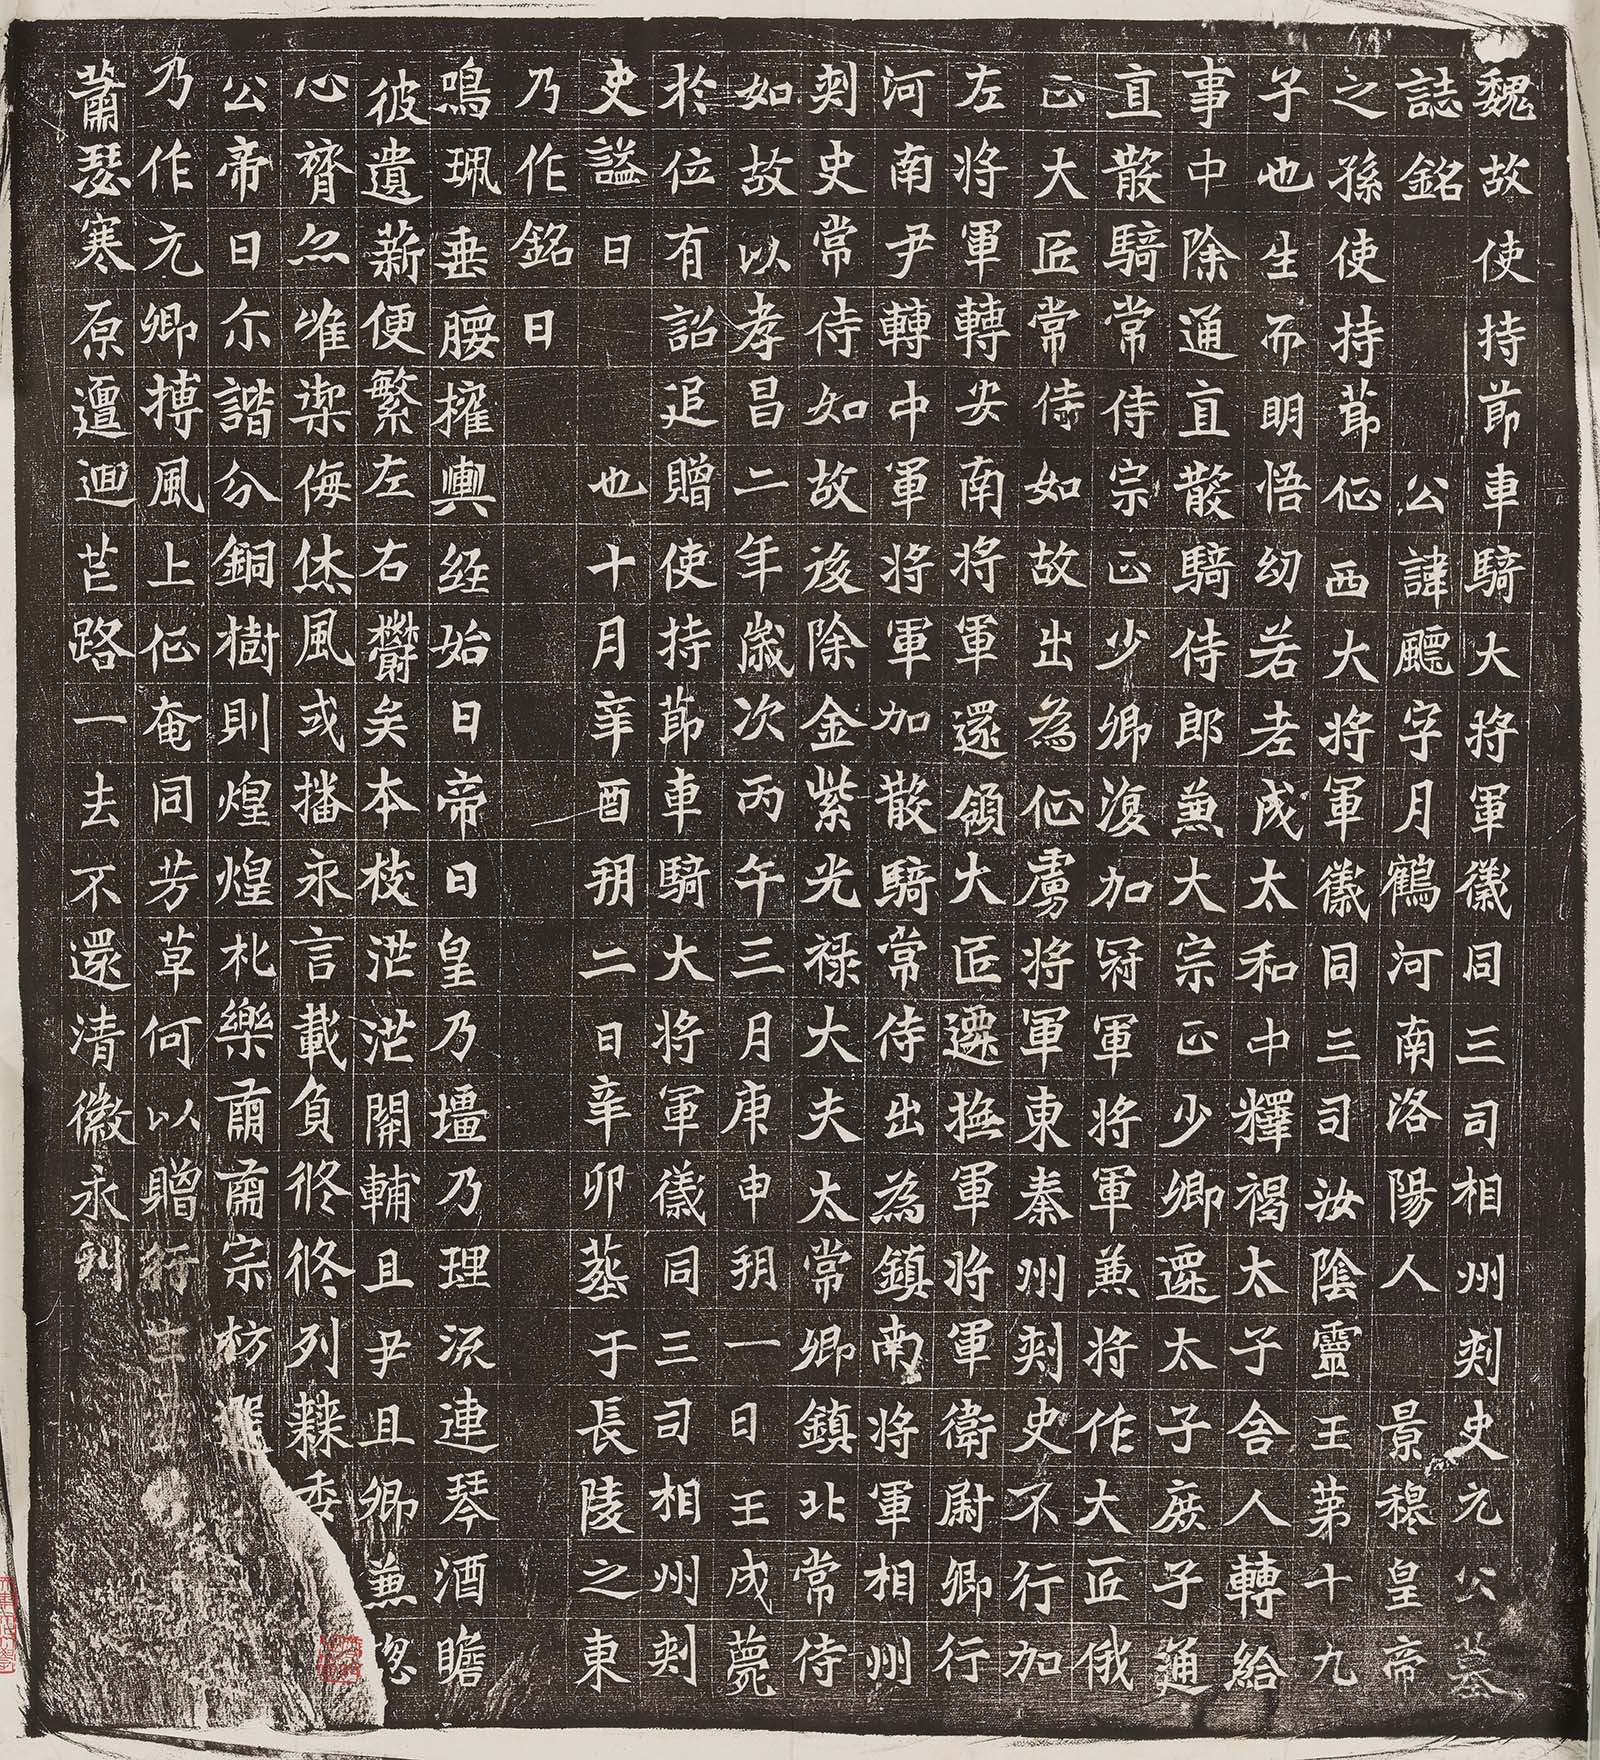 魏故使持節車騎大將軍儀同三司相州刺史元公墓
誌銘
公諱颺字月鶴河南洛陽人景穆皇帝
之孫使持節征西大將軍儀同三司汝陰靈王第十九
子也生而明悟幼若老成太和中釋褐太子舍人轉給
事中除通直散騎侍郎兼大宗正少卿遷太子庶子通
直散騎常侍宗正少卿復加冠軍將軍兼將作大匠俄
正大匠常侍如故出為征虜將軍東秦州刺史不行加
左將軍轉安南將軍還領大匠遷撫軍將軍衛尉卿行
河南尹轉中軍將軍加散騎常侍出為鎮南將軍相州
刺史常侍如故後除金紫光祿大夫太常卿鎮北常侍
如故以孝昌二年歲次丙午三月庚申朔一日王戌薨
於位有詔追贈使持節車騎大將軍儀同三司相州刺
史謚曰也十月辛酉朔二日辛卯葬于長陵之東
乃作銘曰
鳴珮垂腰擁輿經始曰帝曰皇乃壃乃理流連琴酒瞻
彼遺薪便繁左右鬱矣本枝茫茫關輔且尹且卿兼總
心膂炁唯禦侮烋風或播永言載負脩脩列棘委
公帝曰尒諧分銅樹則煌煌礼樂爾爾宗枋選
乃作元卿摶風上征奄同芳草何以贈行
蕭瑟寒原邅迴芒路一去不還清徽永列